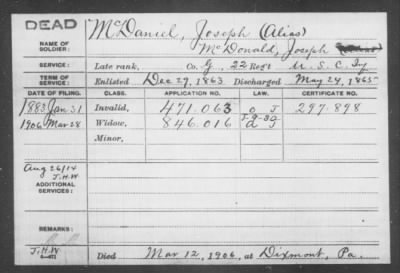 DEAD
McDaniel, Joseph (Alias)
NAME OF SOLDIER: McDonald, Joseph
SERVICE: Late rank, Co. G, 22 Regt U.S.C. Iy
TERM OF SERVICE: Enlisted Dec 29, 1863 Discharged May 24, 1865
DATE OF FILING. CLASS. APPLICATION NO. LAW. CERTIFICATE NO.
1883 Jan 31 Invalid, 471.063 O J 297.898
1906 Mar 28 Widow, 846.016
Minor,
Aug 26/14
J.H.W
ADDITIONAL SERVICES:
REMARKS:
J.H.W
Died Mar 12, 1906, at Dixmont, Pa.